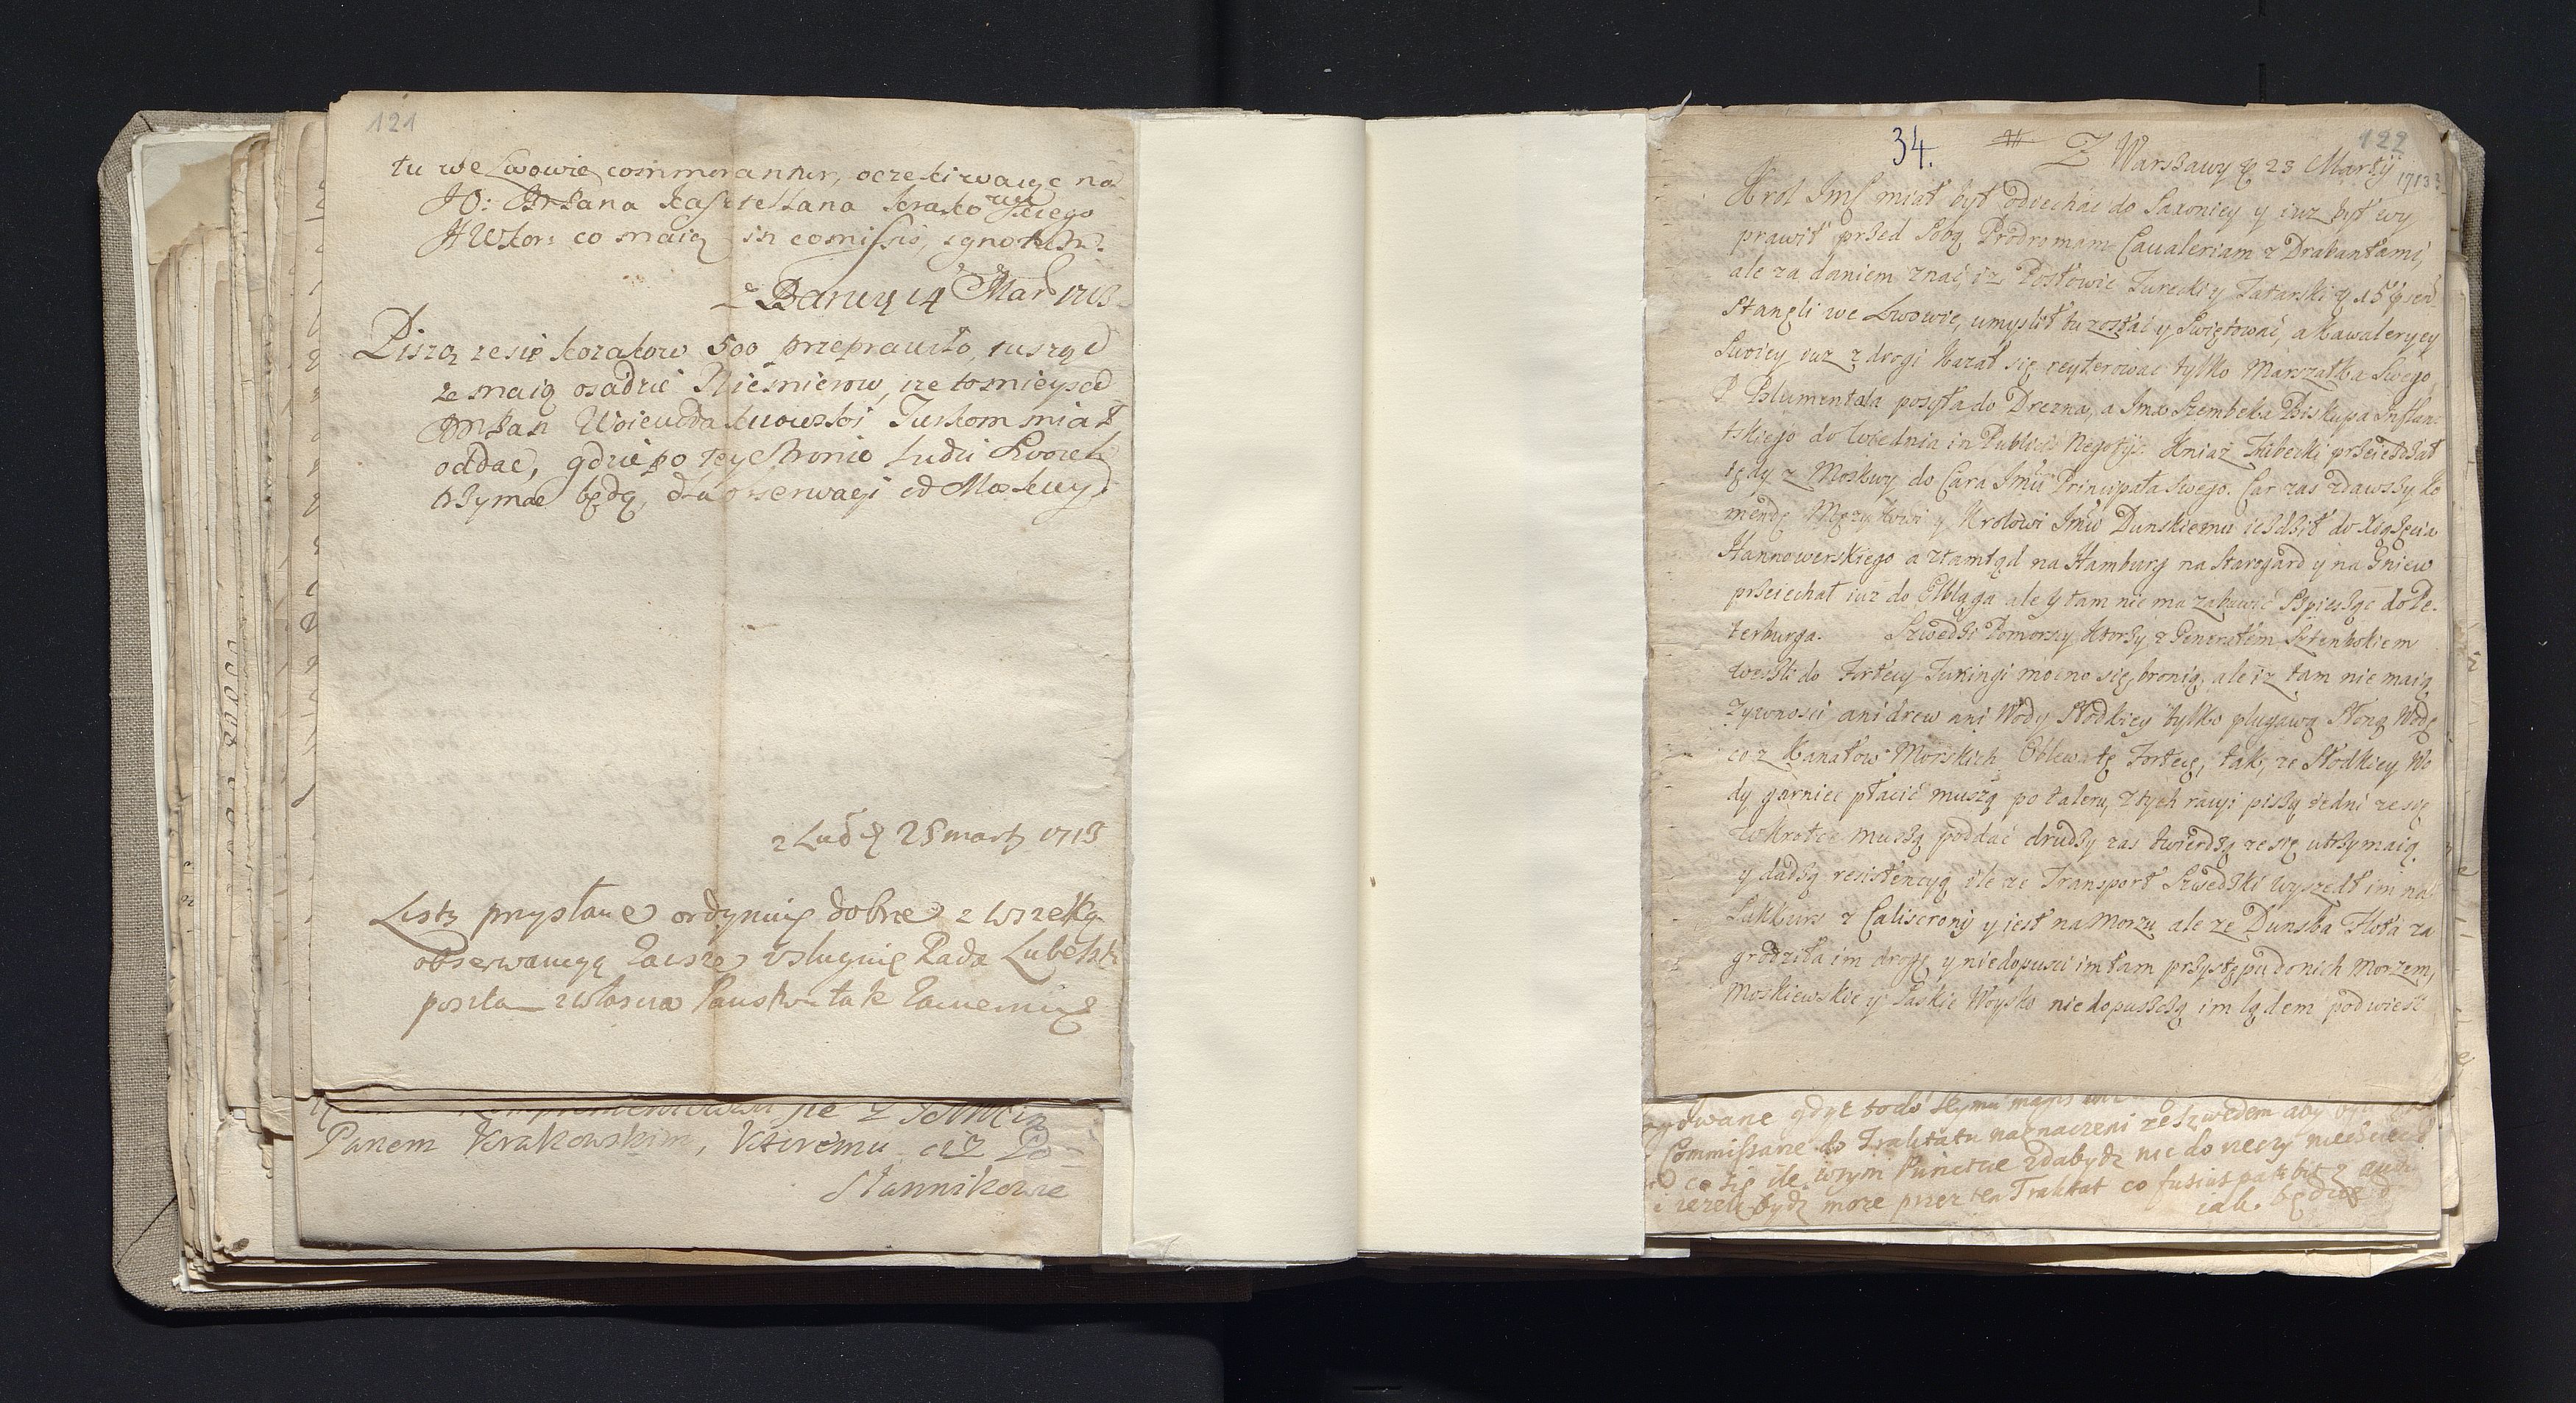 121
tu we Lwowie commorantur, oczekiwaiąc na
JO: JmPana Kasztellana Krakowskiego
HWKor: co maią in comissis, ignotum.
z Baru 14 Mar 1713
Piszą ze się kozakow 500 przeprawiło, tuszą
ze maią osadzić Niemierow, ize to mieysce
JmPan Woiewoda Kiiowski Turkom miał
oddać, gdzie po tey stronie ludzi swoich
trzymać będą, dla obserwacyi od Moskwy
z Lub 28 mart 1713
Listy przysłane ordynuię dobrze z wszelką
obserwancyą usługuię Rada Lubelska
poszta własna tak
się z
Panem Krakowskim, ktoremu ciz Po-
słannikowie
34. 122
Z Warszawy d 23 Martÿ 1713
Krol Jmć miał był odiechać do Saxoniey y iuz był wy
prawił przed sobą Prodromam Caualeriam z Drabantami,
ale za daniem znać, iz Posłowie Turecki y Tatarski d 15 praesen
stanęli we Lwowie, umyslił tu zostać y swiętować, a Kawaleryey
swoiey iuz z drogi kazał się reyterować tylko Marszałka swego
P Blumentala posyła do Drezna, a Jmx Szembeka Biskupa Inflan
tskiego do Wiednia in Publicis Negotÿs. Kniaz Trubecki przeiezdzał
tędy z Moskwy do Cara Jmći Principała swego. Car zas zdawszy ko
mendę Męzykowi y Krolowi Jmci Dunskiemu iezdził do Xiązęcia
Hannowerskiego a ztamtąd na Hamburg na Starogard y na Gniew
przeiechał iuz do Elbląga ale y tam nie ma zabawić spiesząc do Pe-
terburga. Szwedzi Pomorscy ktorzy z Generałem Sztenbokiem
weszli do Fortecy Tuningi mocno się bronią, ale iz tam nie maią
zywnosci ani drew ani Wody słodkiey tylko plugawą słoną Wodę
co z Kanałow Morskich oblewa tę Fortecę, tak, ze słodkiey Wo
dy garniec płacić muszą po taleru, z tych racyi piszą iedni ze się
wkrotce muszą poddać drudzy zas twierdzą ze się utrzymaią
y dadzą resistencyą ile ze Transport Szwedzki wyszedł im na
Sukkurs z Caliscrony y iest na Morzu ale ze Dunska Flota za
grodziła im drogę y niedopusci im tam przystępu do nich Morzem,
Moskiewskie y Saskie Woysko niedopuszczą im lądem podwiesć
gdyz to do seymu
Commissarze do Traktatu naznaczeni ze Szwedem aby byli
co się tle w tym Punctcie zda bydz nic do rzeczy
iezeli bydz moze przez ten Traktat co fusius
iak. będzie